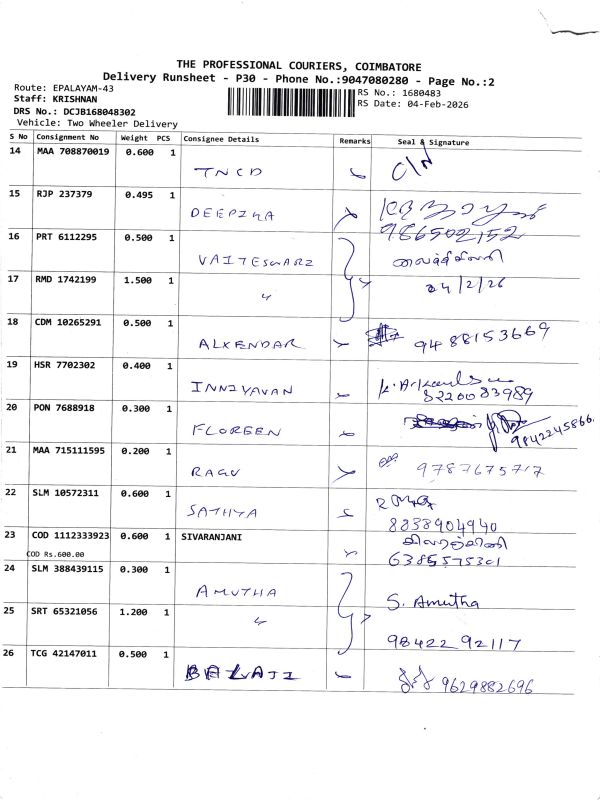 THE PROFESSIONAL COURIERS, COIMBATORE
Delivery Runsheet - P30 - Phone No.:9047080280 - Page No.:2
Route: EPALAYAM-43
Staff: KRISHNAN
DRS No.: DCJB168048302
Vehicle: Two Wheeler Delivery
RS No.: 1680483
RS Date: 04-Feb-2026
S No Consignment No Weight PCS Consignee Details Remarks Seal & Signature
14 MAA 708870019 0.600 1 TNCD
15 RJP 237379 0.495 1 DEEPIKA
986502152
16 PRT 6112295 0.500 1 VAITESWARI
17 RMD 1742199 1.500 1 " 04/2/26
18 CDM 10265291 0.500 1 ALKENDAR 9488153669
19 HSR 7702302 0.400 1 INNIYAVAN
8220083989
20 PON 7688918 0.300 1 FLOREEN 9842245866.
21 MAA 715111595 0.200 1 RAGU 9787675717
22 SLM 10572311 0.600 1 SATHYA
8838904940
23 COD 1112333923 0.600 1 SIVARANJANI
COD Rs.600.00 6385575301
24 SLM 388439115 0.300 1 AMUTHA S. Amutha
25 SRT 65321056 1.200 1 " 98422 92117
26 TCG 42147011 0.500 1 BALAJI 9629882696